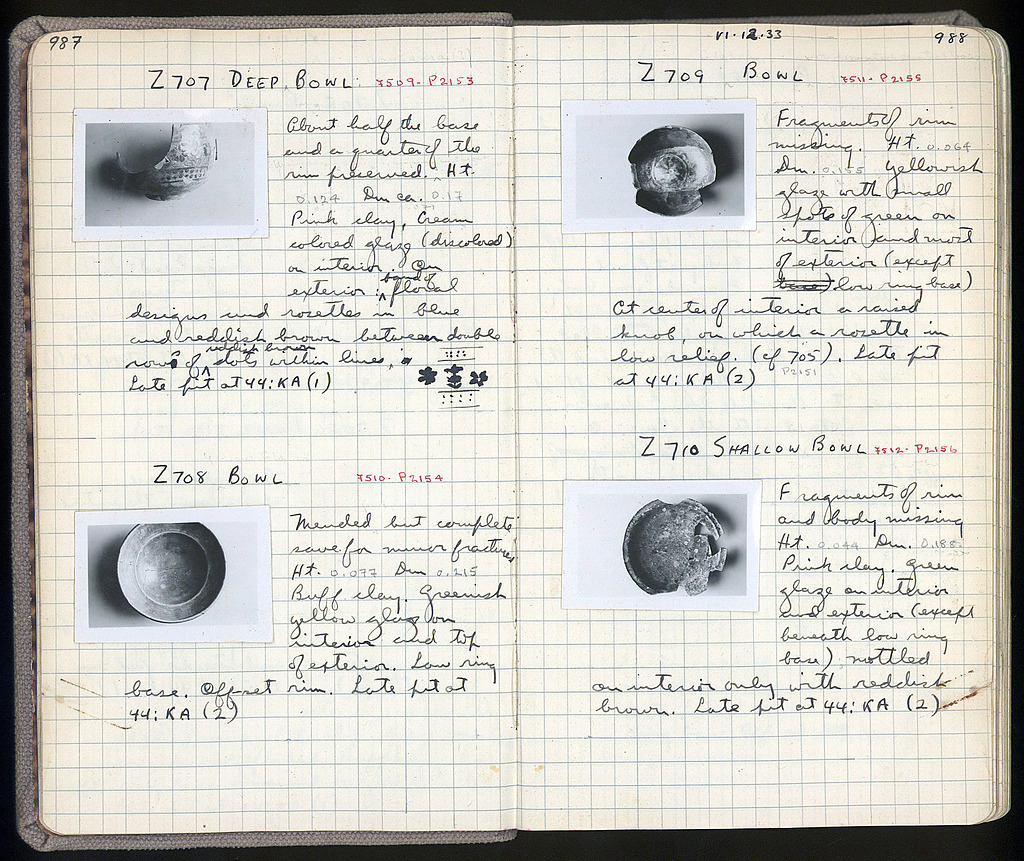 987
Z 707 DEEP BOWL. 7509 - P2153
About half the base
and a quarter of the
rim preserved. Ht.
0.124 Dm ca. 0.17
Pink clay, Cream
colored glaze (discolored)
on interior. On
exterior : band of floral
designs and rosettes in blue
and reddish brown between double
rows of reddish brown dots within lines.
Late pit at 44: KA (1)
Z 708 BOWL 7510 - P2154
Mended but complete
save for minor fractures
Ht. 0.077 Dm 0.215
Buff clay. Greenish
yellow glaze on
interior and top
of exterior. Low ring
base. Offset rim. Late pit at
44: KA (2)
VI·12·33
988
Z 709 BOWL 7511 - P2155
Fragments of rim
missing. Ht. 0.064
Dm. 0.155 Yellowish
glaze with small
spots of green on
interior and most
of exterior (except
base) low ring base)
At center of interior a raised
knob, on which a rosette in
low relief. (cf 705). Late pit
P2151
at 44: KA (2)
Z 710 SHALLOW BOWL 7512 - P2156
Fragments of rim
and body missing
Ht. 0.044 Dm. 0.188
Pink clay. Green
glaze on interior
and exterior (except
beneath low ring
base) mottled
on interior only with reddish
brown. Late pit at 44: KA (2)